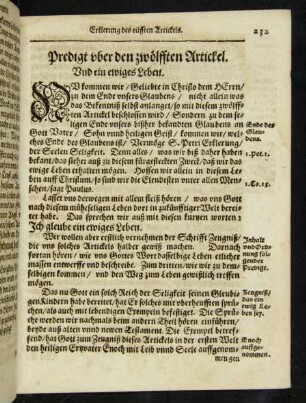 Erklerung des eilfften Artickels. 232
Predigt vber den zwölfften Artickel.
Vnd ein ewiges Leben.
NV kommen wir / Geliebte in Christo dem HErrn /
zu dem Ende vnsers Glaubens / nicht allein was
das Bekentniß selbst anlanget / so mit diesem zwölff-
ten Artickel beschlossen wird / Sondern zu dem se-
ligen Ende vnsers bißher bekandten Glaubens an
Gott Vater / Sohn vnnd heiligen Geist / kommen wir / wel-
ches Ende des Glaubens ist / Vermöge S. Petri Erklerung /
der Seelen Seligkeit. Denn alles / was wir biß daher haben
bekant / das siehet auß zu diesem fürgesteckten Zweck / daß wir das
ewig Leben erlangen mögen. Hoffen wir allein in diesem Le-
ben auff Christum / so sind wir die Elendesten vnter allen Men-
schen / sagt Paulus.
Ende des
Glau-
bens.
1. Pet. 1.
1. Co. 15.
Lasset vns derwegen mit allem fleiß hören / was vns Gott
nach diesem müheseligen Leben dort in zukünfftiger Welt berei-
tet habe. Das sprechen wir auß mit diesen kurtzen worten:
Ich gleube ein ewiges Leben.
Wir wollen aber erstlich vernehmen der Schrifft Zeugniß /
die vns solches Artickels halber gewiß machen. Darnach
fortan hören / wie vns Gottes Wort dasselbige Leben etlicher
massen entwerffe vnd beschreibe. Zum dritten / wie wir zu dem-
selbigen kommen / vnd den Weg zum Leben gewißlich treffen
mögen.
Inhalt
vnd Ord-
nung fol-
gender
Predigt.
Das nu Gott ein solch Reich der Seligkeit seinen Gleubi-
gen Kindern habe bereitet / hat Er solches mit verheissenen sprü-
chen / als auch mit lebendigen Exempeln befestiget. Die Sprü-
che werden wir nachmals beim andern Theil hören einführen /
beyde auß alten vnnd newen Testament. Die Exempel betref-
fend / hat Gott zum Zeugniß dieses Artickels in der ersten Welt
den heiligen Ertzvater Enoch mit Leib vnnd Seele auffgenom-
men / gen
Zeugniß /
das ein
ewig Le-
ben sey.
Enoch
auffge-
nommen.